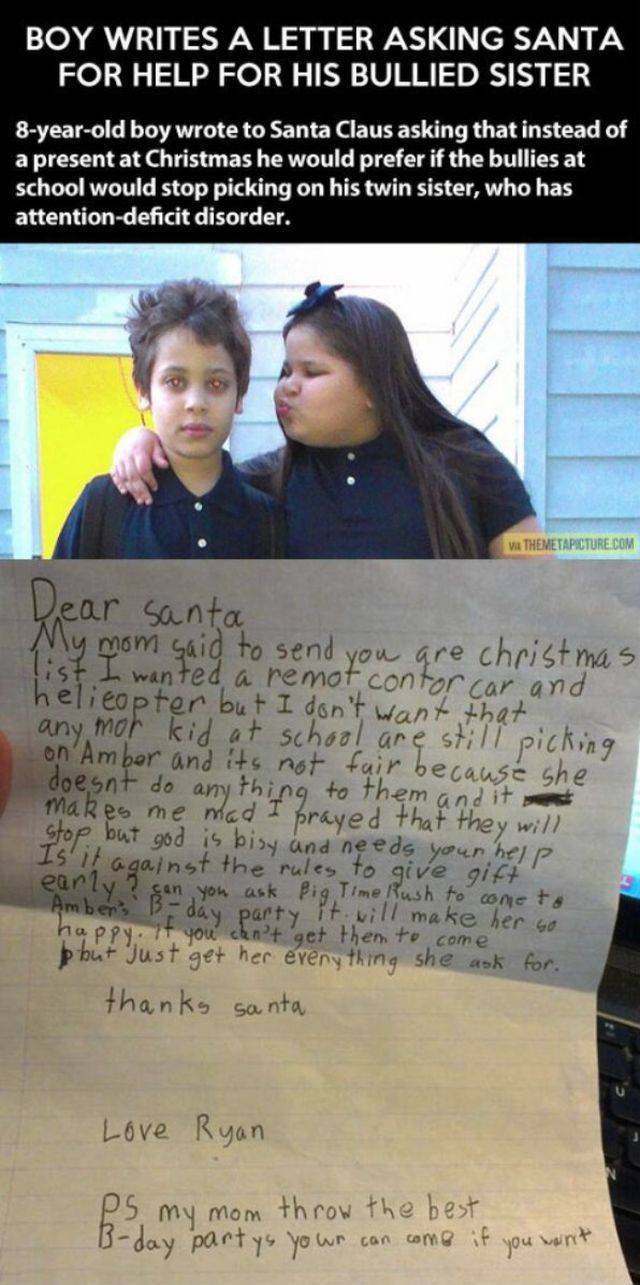 BOY WRITES A LETTER ASKING SANTA
FOR HELP FOR HIS BULLIED SISTER
8-year-old boy wrote to Santa Claus asking that instead of
a present at Christmas he would prefer if the bullies at
school would stop picking on his twin sister, who has
attention-deficit disorder.
VIA THEMETAPICTURE.COM
Dear santa
My mom said to send you are christmas
list I wanted a remot contor car and
helicopter but I don't want that
any mor kid at school are still picking
on Amber and its not fair because she
doesnt do any thing to them and it
makes me mad I prayed that they will
stop but god is bisy and needs your help
Is it against the rules to give gift
early? can you ask Big Time Rush to come to
Amber's B-day party it will make her so
happy. If you can't get them to come
but Just get her everything she ask for.
thanks santa
Love Ryan
PS my mom throw the best
B-day partys your can come if you want